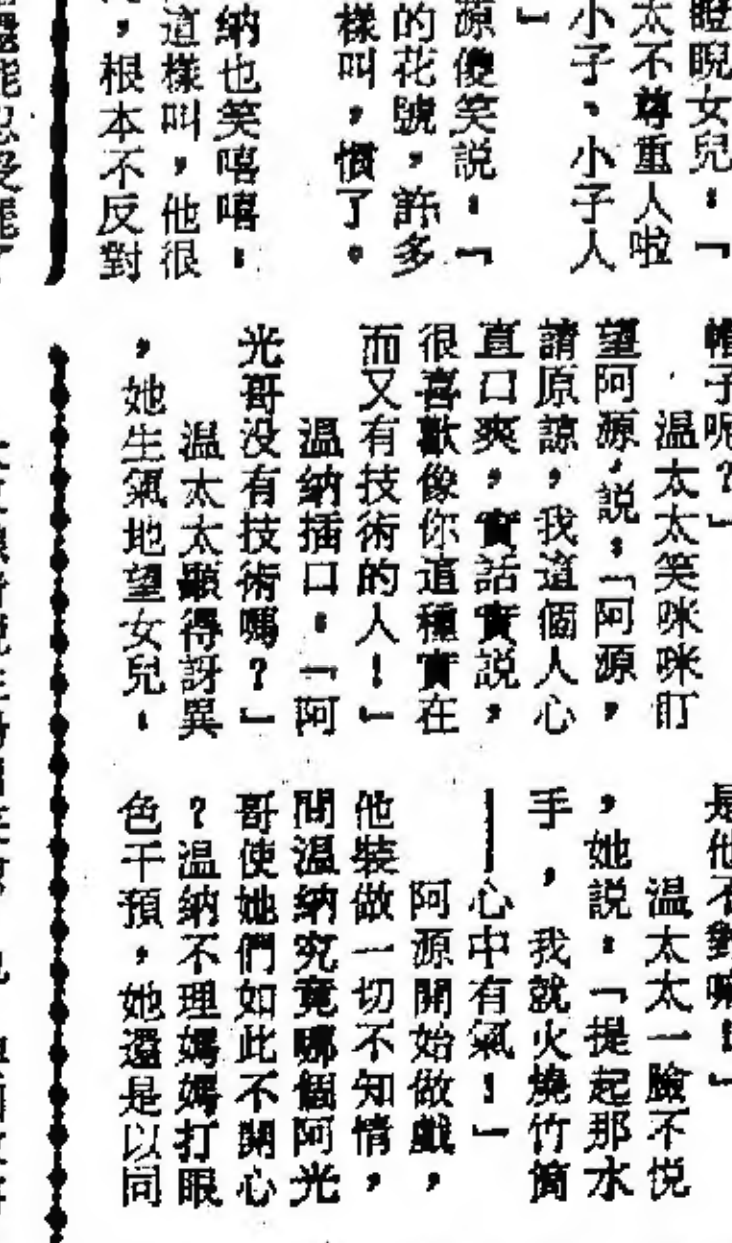 瞪睨女兒：「
太不尊重人啦
小子、小子人
」
源傻笑説：「
的花號，許多
樣叫，慣了。
納也笑嘻嘻：
這樣叫，他很
，根本不反對
帽子呢？」
温太太笑咪咪盯
望阿源，説：「阿源，
請原諒，我這個人心
直口爽，實話實説，
很喜歡像你這種實在
而又有技術的人！」
温納插口：「阿
光哥没有技術嗎？」
温太太顯得訝異
，她生氣地望女兒：
是他不對嘛！」
温太太一臉不悦
，她説：「提起那水
手，我就火燒竹筒
——心中有氣！」
阿源開始做戲，
他裝做一切不知情，
問温納究竟哪個阿光
哥使她們如此不開心
？温納不理媽媽打眼
色干預，她還是以同